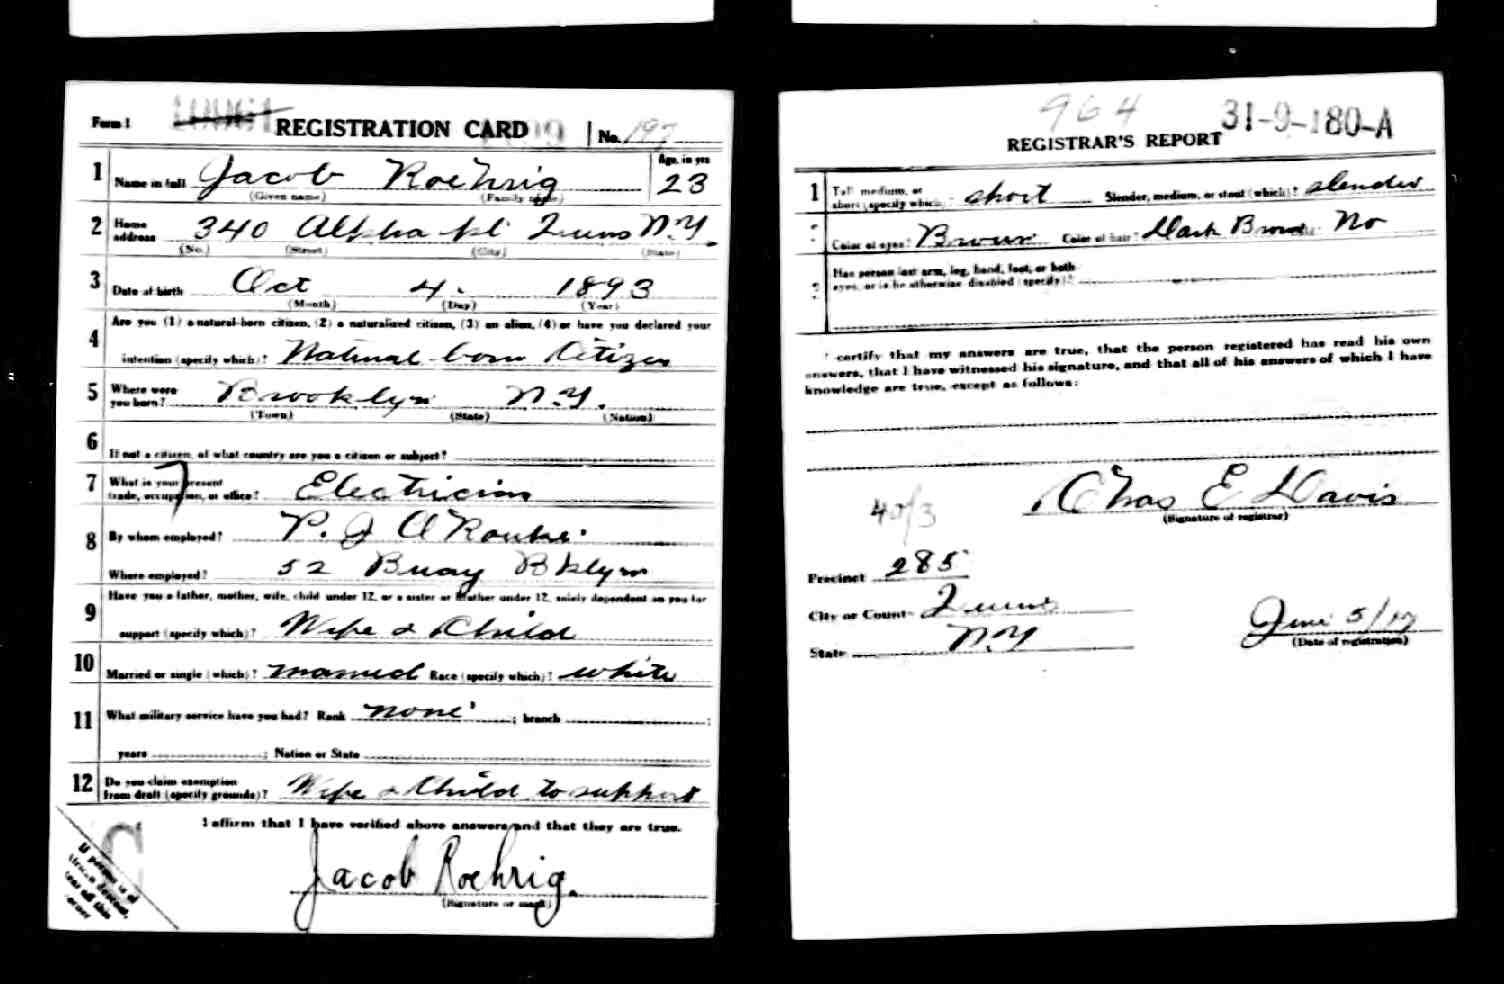 Form 1 REGISTRATION CARD No. 197
1 Name in full Jacob Roehrig Age, in yrs 23
(Given name) (Family name)
2 Home address 340 Alpha pl Queens N.Y.
(No.) (Street) (City) (State)
3 Date of birth Oct 4. 1893
(Month) (Day) (Year)
4 Are you (1) a natural-born citizen, (2) a naturalized citizen, (3) an alien, (4) or have you declared your
intention (specify which)? Natural born Citizen
5 Where were you born? Brooklyn N.Y.
(Town) (State) (Nation)
6 If not a citizen, of what country are you a citizen or subject?
7 What is your present trade, occupation, or office? Electrician
8 By whom employed? P. J O'Rourke
Where employed? 52 Bway Bklyn
9 Have you a father, mother, wife, child under 12, or a sister or brother under 12, solely dependent on you for
support (specify which)? Wife & Child
10 Married or single (which)? married Race (specify which)? white
11 What military service have you had? Rank none ; branch ;
years ; Nation or State
12 Do you claim exemption from draft (specify grounds)? Wife & Child to support
I affirm that I have verified above answers and that they are true.
Jacob Roehrig.
(Signature or mark)
If person is of
African descent,
tear off this
corner
964 31-9-180-A
REGISTRAR'S REPORT
1 Tall, medium, or short (specify which)? short Slender, medium, or stout (which)? slender
Color of eyes? Brown Color of hair? Dark Brown No
Has person lost arm, leg, hand, foot, or both
eyes, or is he otherwise disabled (specify)?
I certify that my answers are true, that the person registered has read his own
answers, that I have witnessed his signature, and that all of his answers of which I have
knowledge are true, except as follows:
Chas E Davis
(Signature of registrar)
Precinct 285
City or County Queens
State N.Y
June 5/17
(Date of registration)